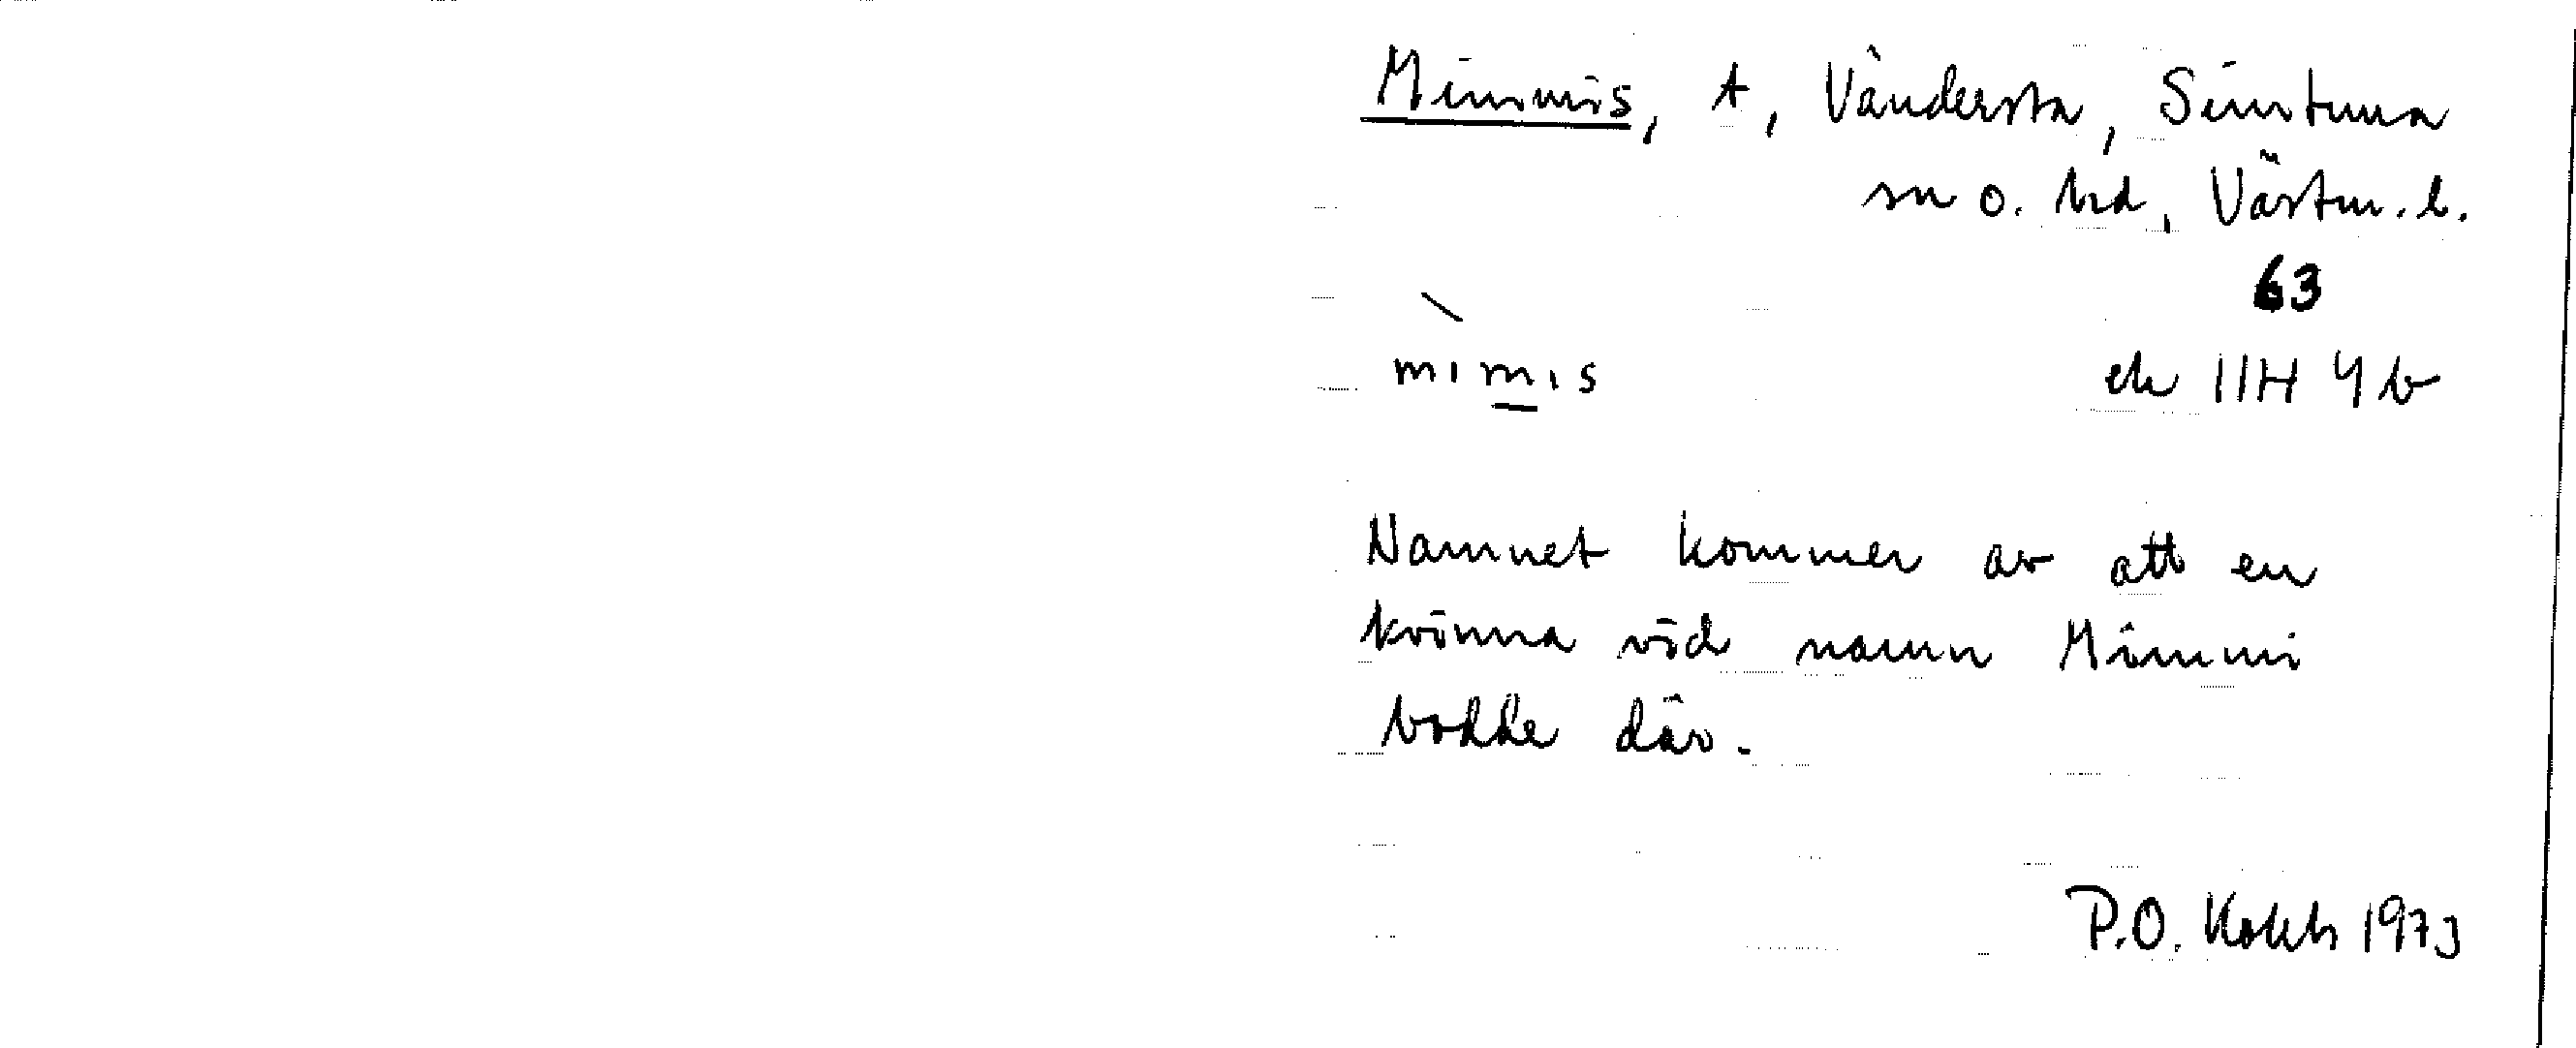 Mimmis, t, Vändersta, Simtuna
sn o. hd, Västm. l.
63
mimis ek 11H 4b
Namnet kommer av att en
kvinna vid namn Mimmi
bodde där.
P.O. 1973